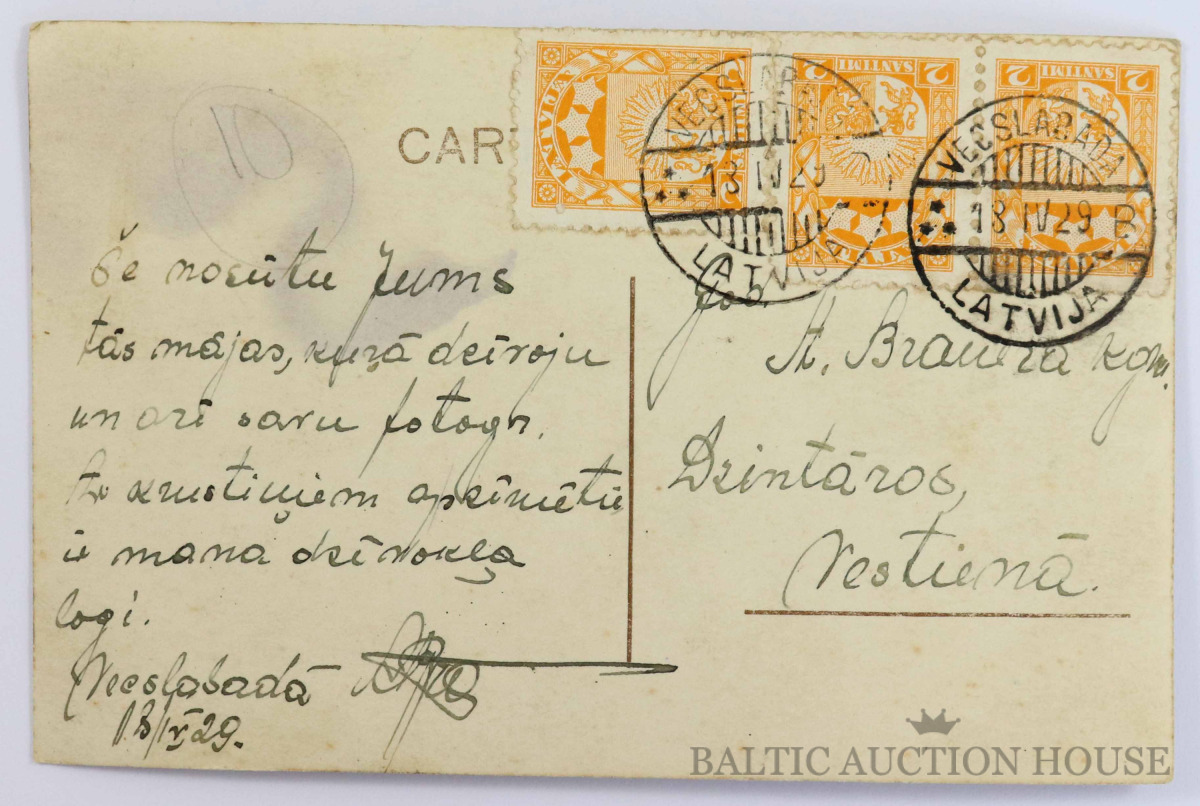 10
CAR
2 SANTIMI 2
2 SANTIMI 2
LATVIJA
VECSLABADA
18 IV 29
LATVIJA
VECSLABADA
18 IV 29 B
LATVIJA
Še nosūtu Jums
tās mājas, kuŗā dzīvoju
un arī savu fotogr.
Ar krustiņiem apzīmētie
ir mana dzīvokļa
logi.
Vecslabadā
18/IV 29.
God.
A. Brauera kgm.
Dzintāros,
Vestienā.
BALTIC AUCTION HOUSE